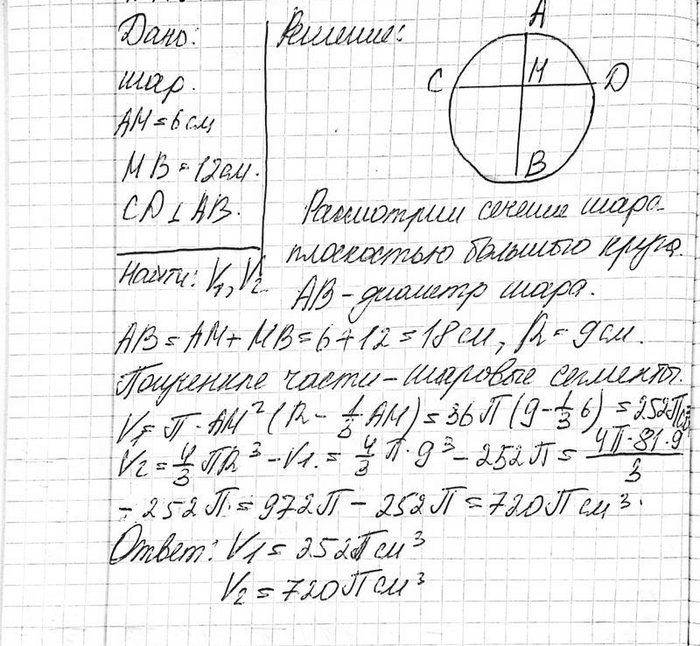 Дано:
шар.
AM = 6 см
MB = 12 см.
CD ⊥ AB.
Найти: V₁, V₂
Решение:
A
C
M
D
B
Рассмотрим сечение шара
плоскостью большого круга.
AB - диаметр шара.
AB = AM + MB = 6 + 12 = 18 см, R = 9 см.
Полученные части - шаровые сегменты.
V₁ = П · AM² (R - 1/3 AM) = 36П (9 - 1/3 6) = 252П см³
V₂ = 4/3 ПR³ - V₁ = 4/3 П · 9³ - 252П = 4П · 81 · 9 / 3
- 252П = 972П - 252П = 720П см³.
Ответ: V₁ = 252П см³
V₂ = 720П см³